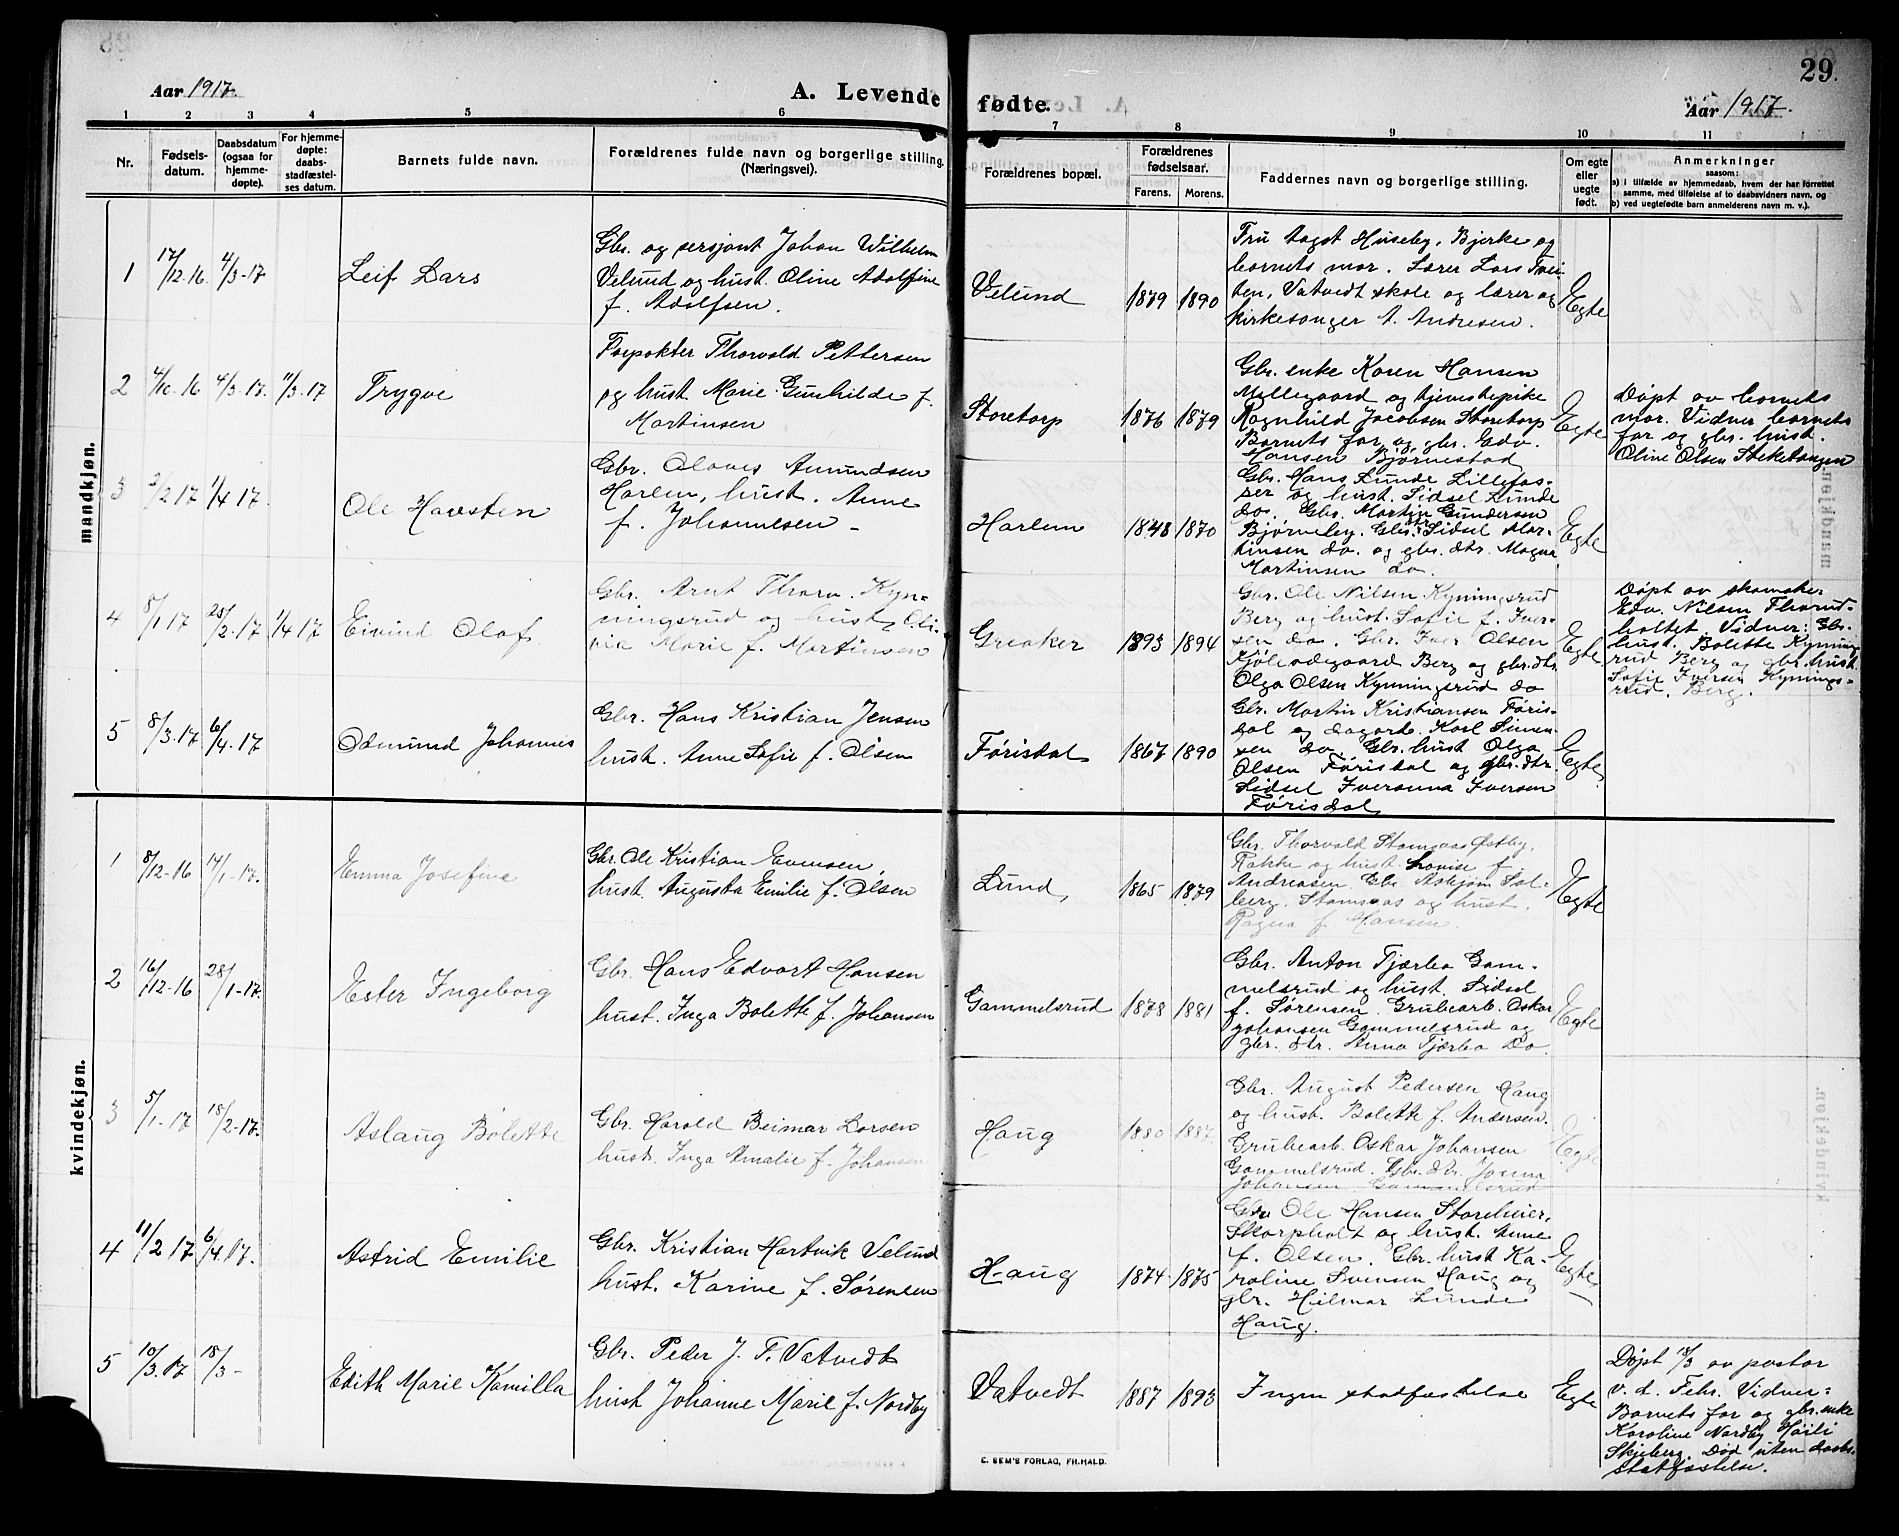 29.
Aar 1917.
A. Levende fødte.
Aar 1917.
1 2 3 4 5 6 7 8 9 10 11
Nr.
Fødsels-
datum.
Daabsdatum
(ogsaa for
hjemme-
døpte).
For hjemme-
døpte:
daabs-
stadfæstel-
ses datum.
Barnets fulde navn.
Forældrenes fulde navn og borgerlige stilling.
(Næringsvei).
Forældrenes bopæl.
Forældrenes
fødselsaar.
Farens. Morens.
Faddernes navn og borgerlige stilling.
Om egte
eller
uegte
født.
Anmerkninger
saasom:
a) i tilfælde av hjemmedaab, hvem der har forrettet
samme, med tilføielse af to daabsvidners navn, og
b) ved uegtefødte barn anmelderens navn m. v.).
mandkjøn.
1
17/12.16
4/3-17
Leif Lars
Gbr. og sersjant Johan Wilhelm
Velund og hust. Oline Adolfine
f. Adolfsen.
Velund
1879
1890
Fru Aagot Huseby, Bjerke og
barnets mor. Lærer Lars Tvei-
ten, Vatvedt skole og lærer og
kirkesanger A. Andresen.
Egte
2
4/10.16
4/3-17.
11/3-17
Trygve
Forpakter Thorvald Pettersen
og hust Marie Gunhilde f.
Martinsen
Storetorp
1876
1879
Gbr. enke Karen Hansen
Møllegaard og tjenestepike
Ragnhild Jacobsen Storetorp
Barnets far og gbr. Edv.
Hansen Bjørnestad
Egte
Døpt av barnets
mor. Vidner barnets
far og gbr. hust.
Oline Olsen Steketangen
3
2/2 17
1/4 17.
Ole Haresten
Gbr. Olaves Amundsen
Harlem, hust. Anne
f. Johannesen -
Harlem
1848
1870
Gbr. Hans Lunde Lillefos-
ser og hust. Sidsel Lunde
do. Gbr. Martin Gundersen
Bjørneby. Gbr. dtr. Sidsel Mar-
tinsen do. og gbr. dtr. Magna
Martinsen do.
Egte
4
8/1 17
25/2-17
1/4 17
Eivind Olaf
Gbr. Arnt Thorv. Kyn-
ningsrud og hust. Oli-
via Marie f. Martinsen
Greaker
1893
1894
Gbr. Ole Nilsen Kynningsrud
Berg og hust. Sofie f. Iver-
sen do. Gbr. Iver Olsen
Kjøleødegaard Berg og gbr. dtr.
Olga Olsen Kynningsrud do
Egte
Døpt av skomaker
Edv. Nilsen Thorud-
holtet. Vidner: Gbr.
hust. Bolette Kynning-
rud Berg og gbr. hust.
Sofie Iversen Kynings-
rud, Berg.
5
8/3.17
6/4.17
Odmund Johannes
Gbr. Hans Kristian Jensen
hust. Anne Sofie f. Olsen
Førisdal
1867
1890
Gbr. Martin Kristiansen Føris-
dal og dagarb. Karl Simen-
sen do. Gbr. hust Olga
Olsen Førisdal og gbr. dtr.
Sidsel Iveranna Iversen
Førisdal
Egte
kvindekjøn.
1
8/12-16
14/1-17.
Emma Josefine
Gbr. Ole Kristian Evensen,
hust. Augusta Emilie f. Olsen
Lund,
1865
1879
Gbr. Thorvald Stamsaas Østby,
Rakke og hust. Lovise f.
Andreasen Gbr. Asbjørn Sol-
berg. Stamsaas og hust.
Ragna f. Hansen.
Egte
2
16/12-16
28/1-17.
Ester Ingeborg
Gbr. Hans Edvart Hansen
hust. Inga Bolette f. Johansen
Gammelsrud
1878
1881
Gbr. Anton Tjærbo Gam-
melsrud og hust. Sidsel
f. Sørensen. Grubearb. Oskar
Johansen Gammelsrud og
gbr. dtr. Anna Tjærbo Do.
Egte
3
5/1-17
18/2-17.
Aslaug Bolette
Gbr. Harald Reimar Larsen
hust. Inga Amalie f. Johansen
Haug
1880
1887
Gbr. August Pedersen Haug
og hust. Bolette f. Andersen.
Grubearb. Oskar Johansen
Gammelsrud. Gbr. dtr. Joanna
Johansen Gammelsrud
Egte
4
11/2 17
6/4.17.
Astrid Emilie
Gbr. Kristian Hartvik Velund
hust. Karine f. Sørensen
Haug
1874
1875
Gbr Ole Hansen Storeheier,
Skorpholt og hust. Anne
f. Olsen. Gbr. hust Ka-
roline Svensen Haug og
gbr. Hilmar Lunde
Haug.
Egte
5
10/3.17
18/3-
Edith Marie Kamilla
Gbr. Peder J. T. Vatvedt
hust Johanne Marie f. Nordby
Vatvedt
1887
1893
Ingen stadfæstelse
Egte
Døpt 18/3 av pastor
v. d. Fehr. Vidner:
Barnets far og gbr. enke
Karoline Nordby Høili
Skjeberg. Død uten daabs-
statfæstelse.
E. SEM'S FORLAG, FR.HALD.